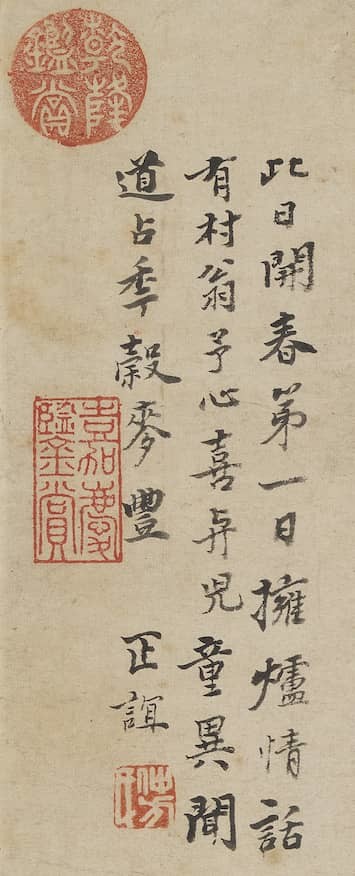 此日開春第一日擁爐情話
有村翁予心喜与兒童異聞
道占秊穀麥豐
正誼
乾隆
鑑賞
嘉慶
鑒賞